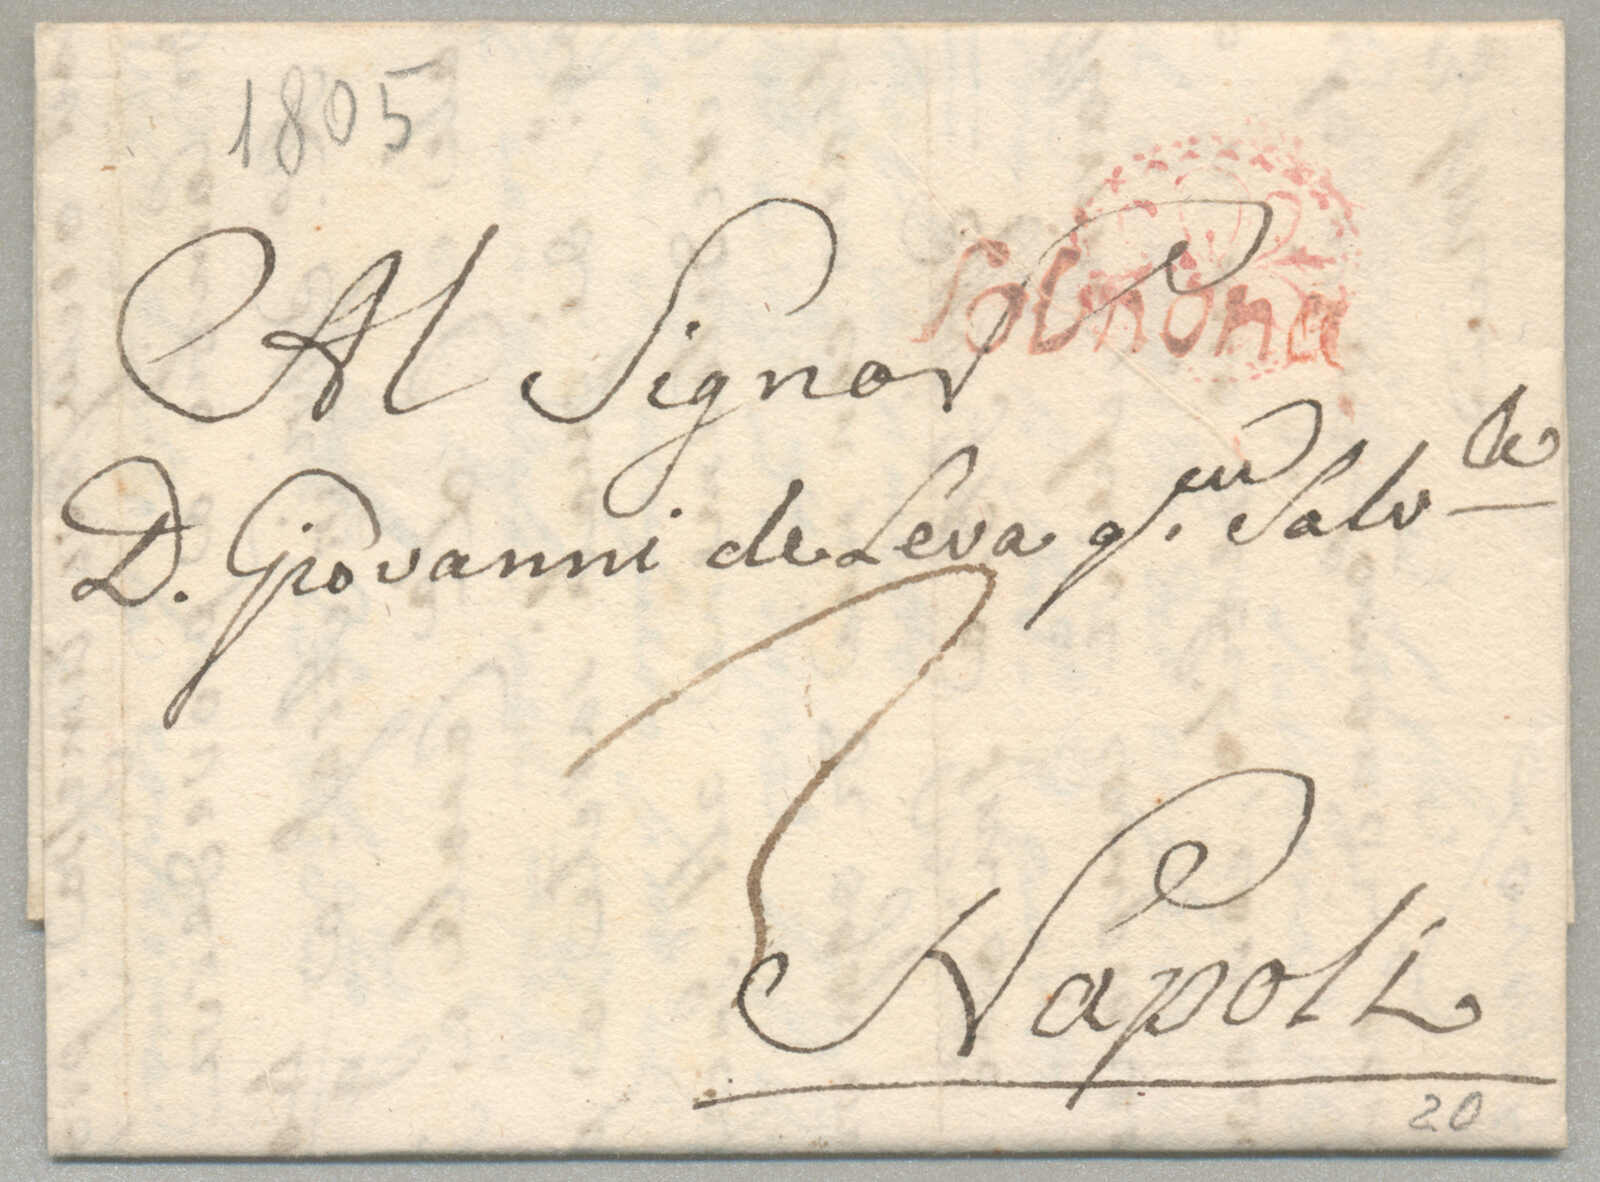 1805
Solmona
Al Signor
D. Giovanni de Leva q.m Salv.le
Napoli
20